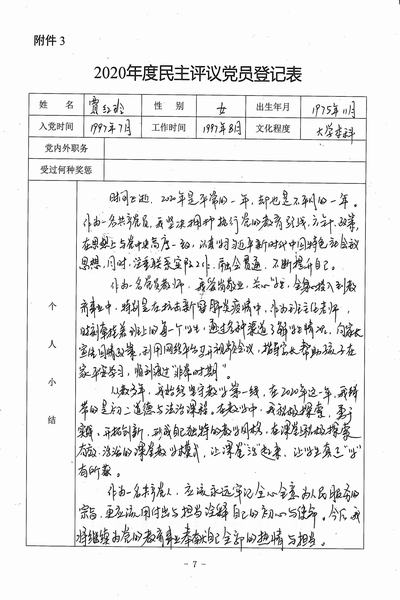 附件 3
2020年度民主评议党员登记表
姓 名 贾红玲 性 别 女 出生年月 1975年11月
入党时间 1997年7月 工作时间 1997年8月 文化程度 大学本科
党内外职务
受过何种奖惩
个人小结
时间飞逝，2020年是平常的一年，却也是不平凡的一年。
作为一名共产党员，我坚决拥护执行党的教育路线、方针、政策，
在思想上与党中央高度一致，认真学习近平新时代中国特色社会主义
思想，同时，注意联系实际工作，融会贯通，不断提升自己。
作为一名党员教师，我爱岗敬业，关心学生，全身心投入到教
育事业中，特别是在抗击新冠肺炎疫情中，作为班主任老师，
时刻牵挂着班上的每一个学生，通过各种渠道了解学生情况，向家长
宣传国情政策，利用网络平台召开视频会议，指导家长帮助孩子在
家平安学习，顺利度过"非常时期"。
从教多年，我始终坚守教学第一线，在2020年这一年，我所
带的是初二道德与法治课程，在教学中，我积极探索，勇于
实践，开拓创新，形成自己独特的教学风格，在课堂积极探索
高效、活泼的课堂教学模式，让课堂"活"起来，让学生真正"学"
有所获。
作为一名共产党人，应该永远牢记全心全意为人民服务的
宗旨，更应该用付出与担当诠释自己的初心与使命。今后，我
将继续为党的教育事业奉献自己全部的热情与担当。
- 7 -